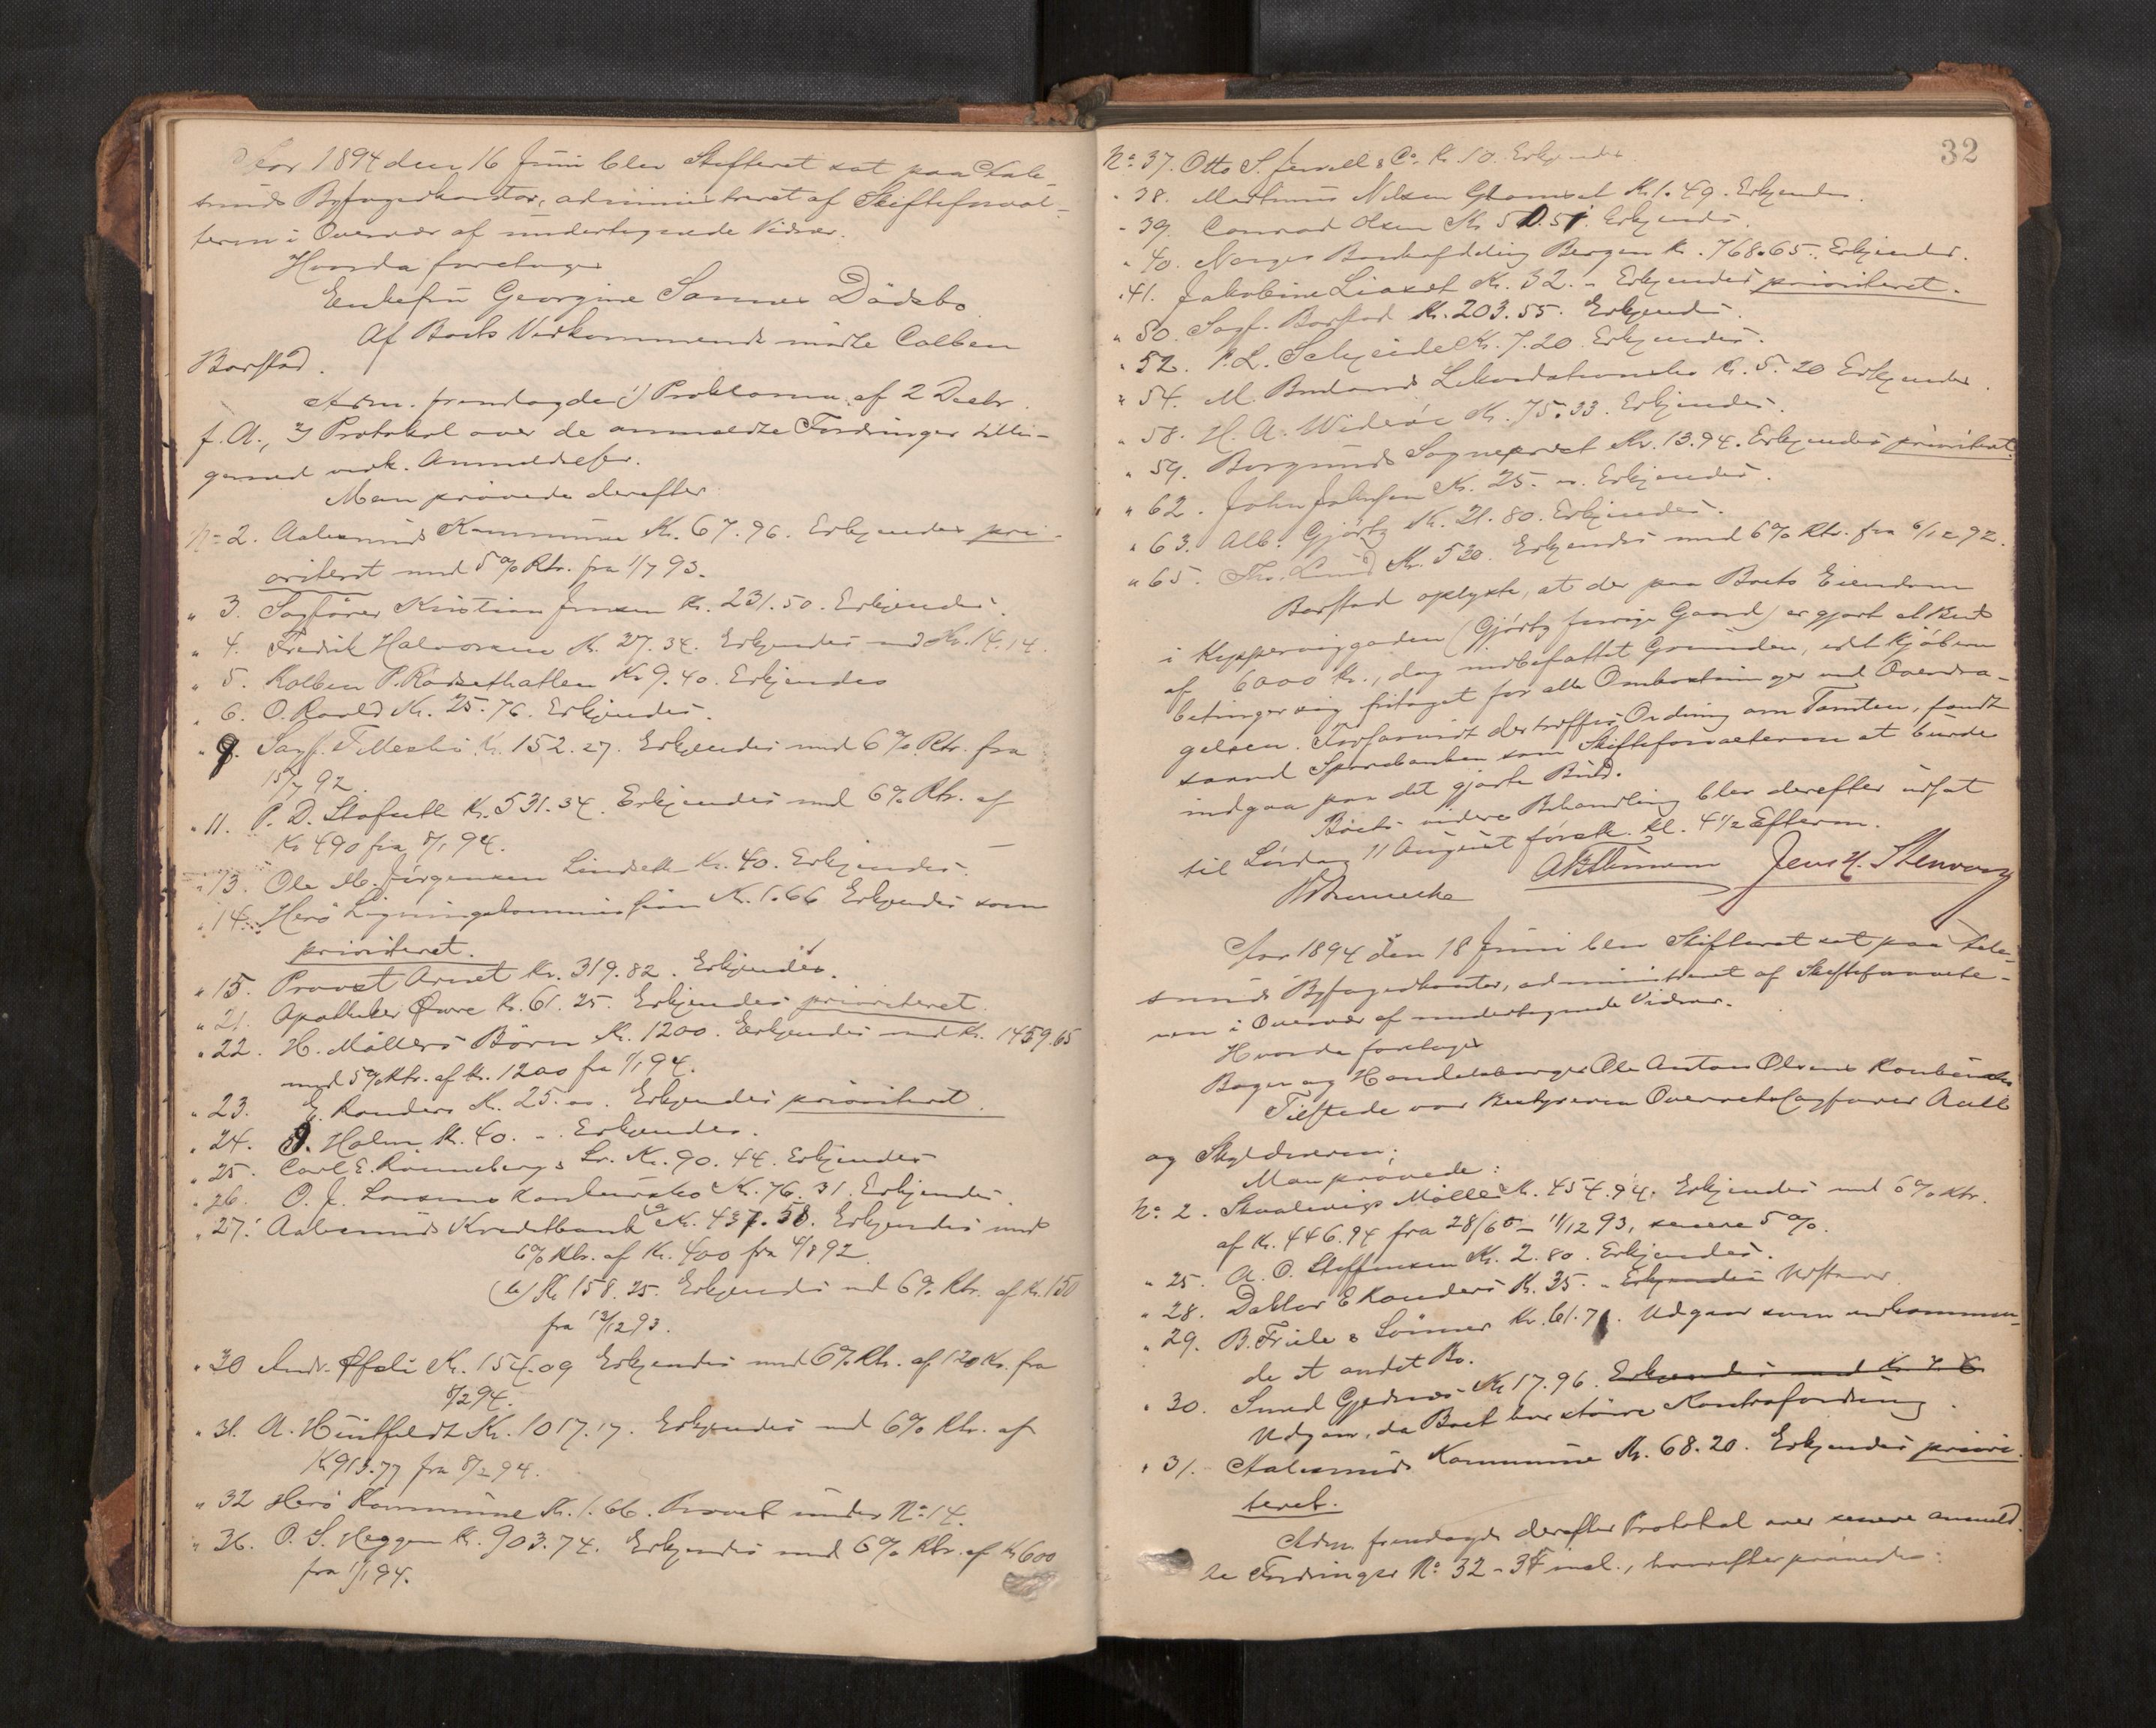 Aar 1894 den 16 Juni blev Skifteret sat paa Aale-
sunds Byfogedkontor, administreret af Skifteforval-
teren i Overvær af undertegnede Vidner.
Hvorda foretoges
Enkefru Georgine Sannes Dødsbo
Af Boets Vedkommende mødte Calben
Barstad.
Adm. fremlagde 1) Proklama af 2 Decbr.
f. A., 2) Protokol over de anmeldte Fordringer tilli-
gemed vedk. Anmeldelser.
Man prøvede derefter
No 2. Aalesunds Kommune Kr. 67.96. Erkjendes pri-
oriteret med 5% Rtr. fra 1/7 93.
" 3. Sagfører Kristian Jensen Kr. 231.50. Erkjendes.
" 4. Fredrik Halvorsen Kr. 27.34. Erkjendes med Kr. 14.14.
" 5. Kolben P. Rødsethatlen Kr 9.40. Erkjendes
" 6. O. Roald Kr. 25.76. Erkjendes.
" 9. Sagf. Kr. 152.27. Erkjendes med 6% Rtr. fra
15/7 92.
" 11. P. D. Stafsett Kr. 531.34. Erkjendes med 6% Rtr. af
Kr 490 fra 8/1 94.
" 13. Ole M. Jørgensen Lindseth Kr. 40. Erkjendes.
" 14. Herø Ligningskommission Kr. 1.66 Erkjendes som
prioriteret.
" 15. Provst Arnet Kr. 319.82. Erkjendes.
" 21. Apotheker Øwre Kr. 61.25. Erkjendes prioriteret.
" 22. H. Møllers Børn Kr. 1200. Erkjendes med Kr. 1459.65
med 5% Rtr. af Kr. 1200 fra 1/1 94.
" 23. E. Konders Kr. 25.00. Erkjendes prioriteret.
" 24. J. Holm Kr. 40. -. Erkjendes.
" 25. Carl E. Rønnebergs Sr. Kr. 90.44. Erkjendes
" 26. O. J. Larsens Konkursbo Kr. 76.31. Erkjendes.
" 27. Aalesunds Kreditbank (a Kr. 437.58. Erkjendes med
6% Rtr. af Kr. 400 fra 4/8 92.
(b) Kr 158.25. Erkjendes med 6% Rtr. af Kr. 150
fra 12/12 93.
" 30 Andr. Kr. 154.09 Erkjendes med 6% Rtr. af 120 Kr. fra
8/2 94.
" 31. A. Huitfeldt Kr. 1017.17. Erkjendes med 6% Rtr. af
Kr 913.77 fra 8/2 94.
" 32 Herø Kommune Kr. 1.66. Prøvet under No 14.
" 36. O. S. Heggen Kr. 903.74. Erkjendes med 6% Rtr. af Kr 600
fra 1/1 94.
32
No 37. Otto S. Jervell & Co. Kr. 10. Erkjendes.
" 38. Marthinus Nilsen Kr. 1.49. Erkjendes.
" 39. Conrad Olsen Kr. 50.51. Erkjendes.
" 40. Norges Bankafdeling Bergen Kr. 768.65. Erkjendes.
" 41. Jakobine Liaset Kr. 32. - Erkjendes prioriteret.
" 50. Sagf. Barstad Kr. 203.55. Erkjendes.
" 52. P. L. Scheidel Kr. 7.20. Erkjendes.
" 54. M. Likvidationsbo Kr. 5.20 Erkjendes.
" 58. H. A. Widerøe Kr. 75.33. Erkjendes.
" 59. Borgunds Sogneprest Kr. 13.94. Erkjendes prioriteret.
" 62. John Johnsen Kr. 25.00. Erkjendes.
" 63. Alb. Gjørtz Kr. 21.80. Erkjendes.
" 65. Ths. Lund Kr. 530. Erkjendes med 6% Rtr. fra 6/12 92.
Barstad oplyste, at der paa Boets Eiendom
i Kipperviggaden (Gjørtz forrige Gaard) er gjort et Bud
af 6000 Kr., dog indbefattet Grunden, idet Kjøberen
betinger sig fritaget for alle Omkostninger ved Overdra-
gelsen. Forsaavidt der træffes Ordning om Tomten, fandt
saavel Sparebanken som Skifteforvalteren at burde
indgaa paa det gjorte Bud.
Boets videre Behandling blev derefter udsat
til Lørdag 11 August førstk. Kl. 4 1/2 Efterm.
Jens H. Stenvaag
Aar 1894 den 18 Juni blev Skifteret sat paa Aale-
sunds Byfogedkontor, administreret af Skifteforvalte-
ren i Overvær af undertegnede Vidner.
Hvorda foretoges
Bager og Handelsborger Ole Anton Olsens Konkursbo
Tilstede var Bestyreren Overretssagfører Aall
og Skyldneren.
Man prøvede:
No 2. Staalevigs Mølle Kr. 454.94. Erkjendes med 6% Rtr.
af Kr. 446.94 fra 28/6 - 11/12 93, senere 5%.
" 25. A. O. Steffensen Kr. 2.80. Erkjendes.
" 28. Doktor E Konders Kr. 35. - Erkjendes Udstaar.
" 29. B. Friele & Sønner Kr. 61.71. Udgaar som vedkommen-
de et andet Bo.
" 30. Smed Gjedsnes Kr 17.96. Erkjendes med Kr.
Udgaar, da Boet har større Kontrafordring.
" 31. Aalesunds Kommune Kr. 68.20. Erkjendes priori-
teret.
Adm. fremlagde derefter Protokol over senere anmeld-
te Fordringer No 32 - 34 incl., hvorefter prøvedes: